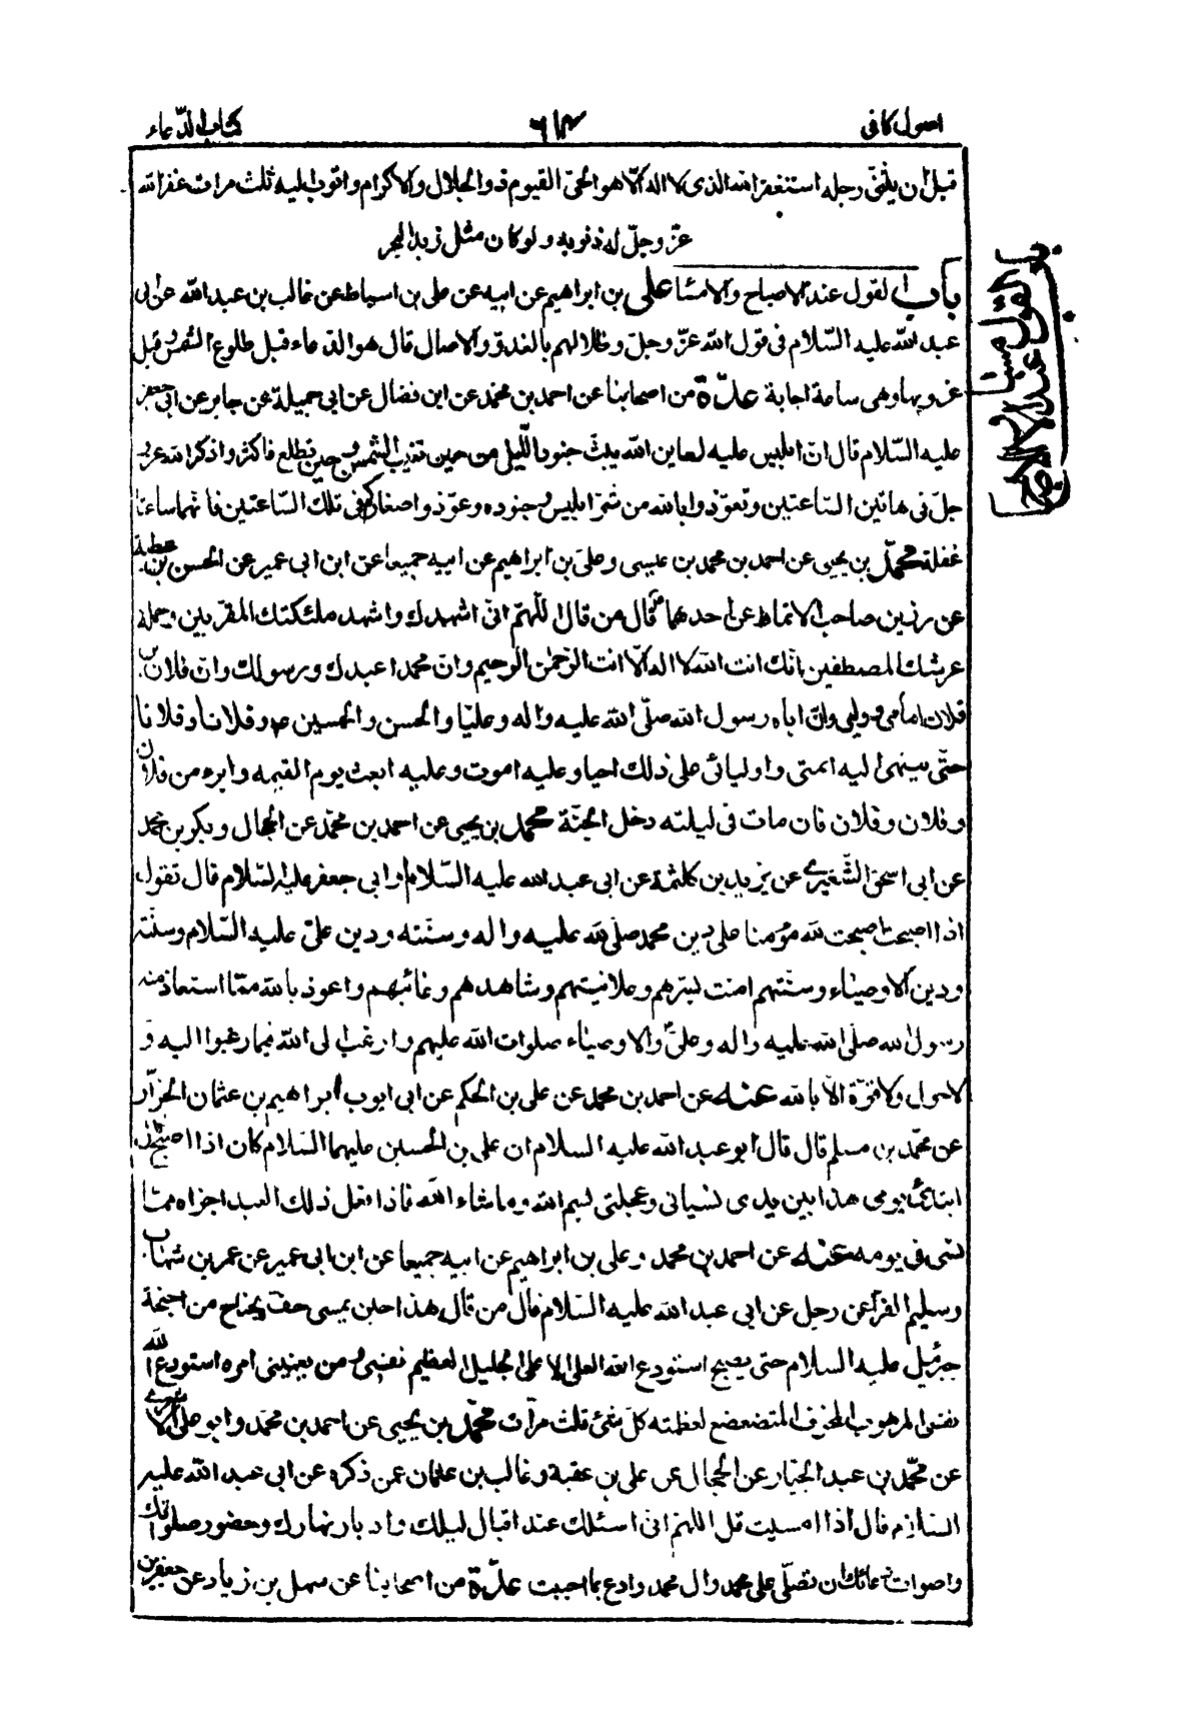 اصول كافى ٦١٤ كتاب الدّعاء
قبل ان يثنى رجله استغفر الله الذى لا اله الّا هو الحىّ القيوم ذو الجلال والاكرام واتوب اليه ثلث مرات غفر الله
عزّ وجلّ له ذنوبه ولو كان مثل زبد البحر
باب القول عند الاصباح والامسا على بن ابراهيم عن ابيه عن على بن اسباط عن غالب بن عبد الله عن ابى
عبد الله عليه السّلام فى قول الله عزّ وجلّ وظلالهم بالغدوّ والاصال قال هو الدعاء قبل طلوع الشمس وقبل
غروبها وهى ساعة اجابة عدّة من اصحابنا عن احمد بن محمد عن ابن فضال عن ابى جميلة عن جابر عن ابى جعفر
عليه السّلام قال ان ابليس عليه لعاين الله يبثّ جنود اللّيل من حين تغيب الشمس وحين تطلع فاكثروا ذكر الله عزو
جلّ فى هاتين السّاعتين وتعوّذوا بالله من شرّ ابليس وجنوده وعوّذوا صغاركم فى تلك السّاعتين فانهما ساعتا
غفلة محمّد بن يحيى عن احمد بن محمد بن عيسى وعلىّ بن ابراهيم عن ابيه جميعا عن ابن ابى عمير عن الحسن بن عطية
عن رزين صاحب الانماط عن احدهما قال من قال اللّهمّ انّى اشهدك واشهد ملئكتك المقربين وحملة
عرشك المصطفين بانّك انت الله لا اله الّا انت الرّحمن الرحيم وانّ محمدا عبدك ورسولك وان فلان بن
فلان امامى و وليى وانّ اباه رسول الله صلّى الله عليه واله وعليّا والحسن والحسين ص وفلانا وفلانا
حتّى ينتهى اليه ائمتى واوليائى على ذلك احيا وعليه اموت وعليه ابعث يوم القيمه وابرء من فلان
وفلان وفلان فان مات فى ليلته دخل الجنّة محمد بن يحيى عن احمد بن محمّد عن الحجال وبكر بن محمد
عن ابى اسحق الشّعيرى عن يزيد بن كلثمة عن ابى عبد الله عليه السّلام او ابى جعفر عليه السلام قال تقول
اذا اصبحت اصبحت بالله مؤمنا على دين محمد صلى الله عليه واله وسنّته ودين علىّ عليه السّلام وسنّته
ودين الاوصياء وسنّتهم امنت بسّرهم وعلانيتهم وشاهدهم وغائبهم واعوذ بالله ممّا استعاذ منه
رسول الله صلّى الله عليه واله وعلىّ والاوصياء صلوات الله عليهم وارغب الى الله فيما رغبوا اليه و
لا حول ولا قوّة الّا بالله عنه عن احمد بن محمد عن على بن الحكم عن ابى ايوب ابراهيم بن عثمان الخزّاز
عن محمّد بن مسلم قال قال ابو عبد الله عليه السلام ان على بن الحسين عليهما السّلام كان اذا اصبح قال
ابتدئ يومى هذا بين يدى نسيانى وعجلتى بسم الله وما شاء الله فاذا فعل ذلك العبد اجزاه ممّا
نسى فى يومه عنه عن احمد بن محمد وعلى بن ابراهيم عن ابيه جميعا عن ابن ابى عمير عن عمر بن شهاب
وسليم الفرآ عن رجل عن ابى عبد الله عليه السّلام قال من قال هذا حين يمسى حفّ بجناح من اجنحة
جبرئيل عليه السلام حتى يصبح استودع الله العلى الاعلى الجليل العظيم نفسى و من يعنينى امره استودع الله
نفسى المرهوب المخوف المتضعضع لعظمته كلّ شئ ثلث مرّات محمّد بن يحيى عن احمد بن محمّد وابو على الاشعرى
عن محمّد بن عبد الجبّار عن الحجال عن على بن عقبة وغالب بن عثمان عمن ذكره عن ابى عبد الله عليه
السّلام قال اذا امسيت قل اللهمّ انّى اسئلك عند اقبال ليلك وادبار نهارك وحضور صلواتك
واصوات دعائك ان تصلّى على محمد وال محمد وادع بما احببت عدّة من اصحابنا عن سهل بن زياد عن جعفر بن
باب القول عند الاصباح